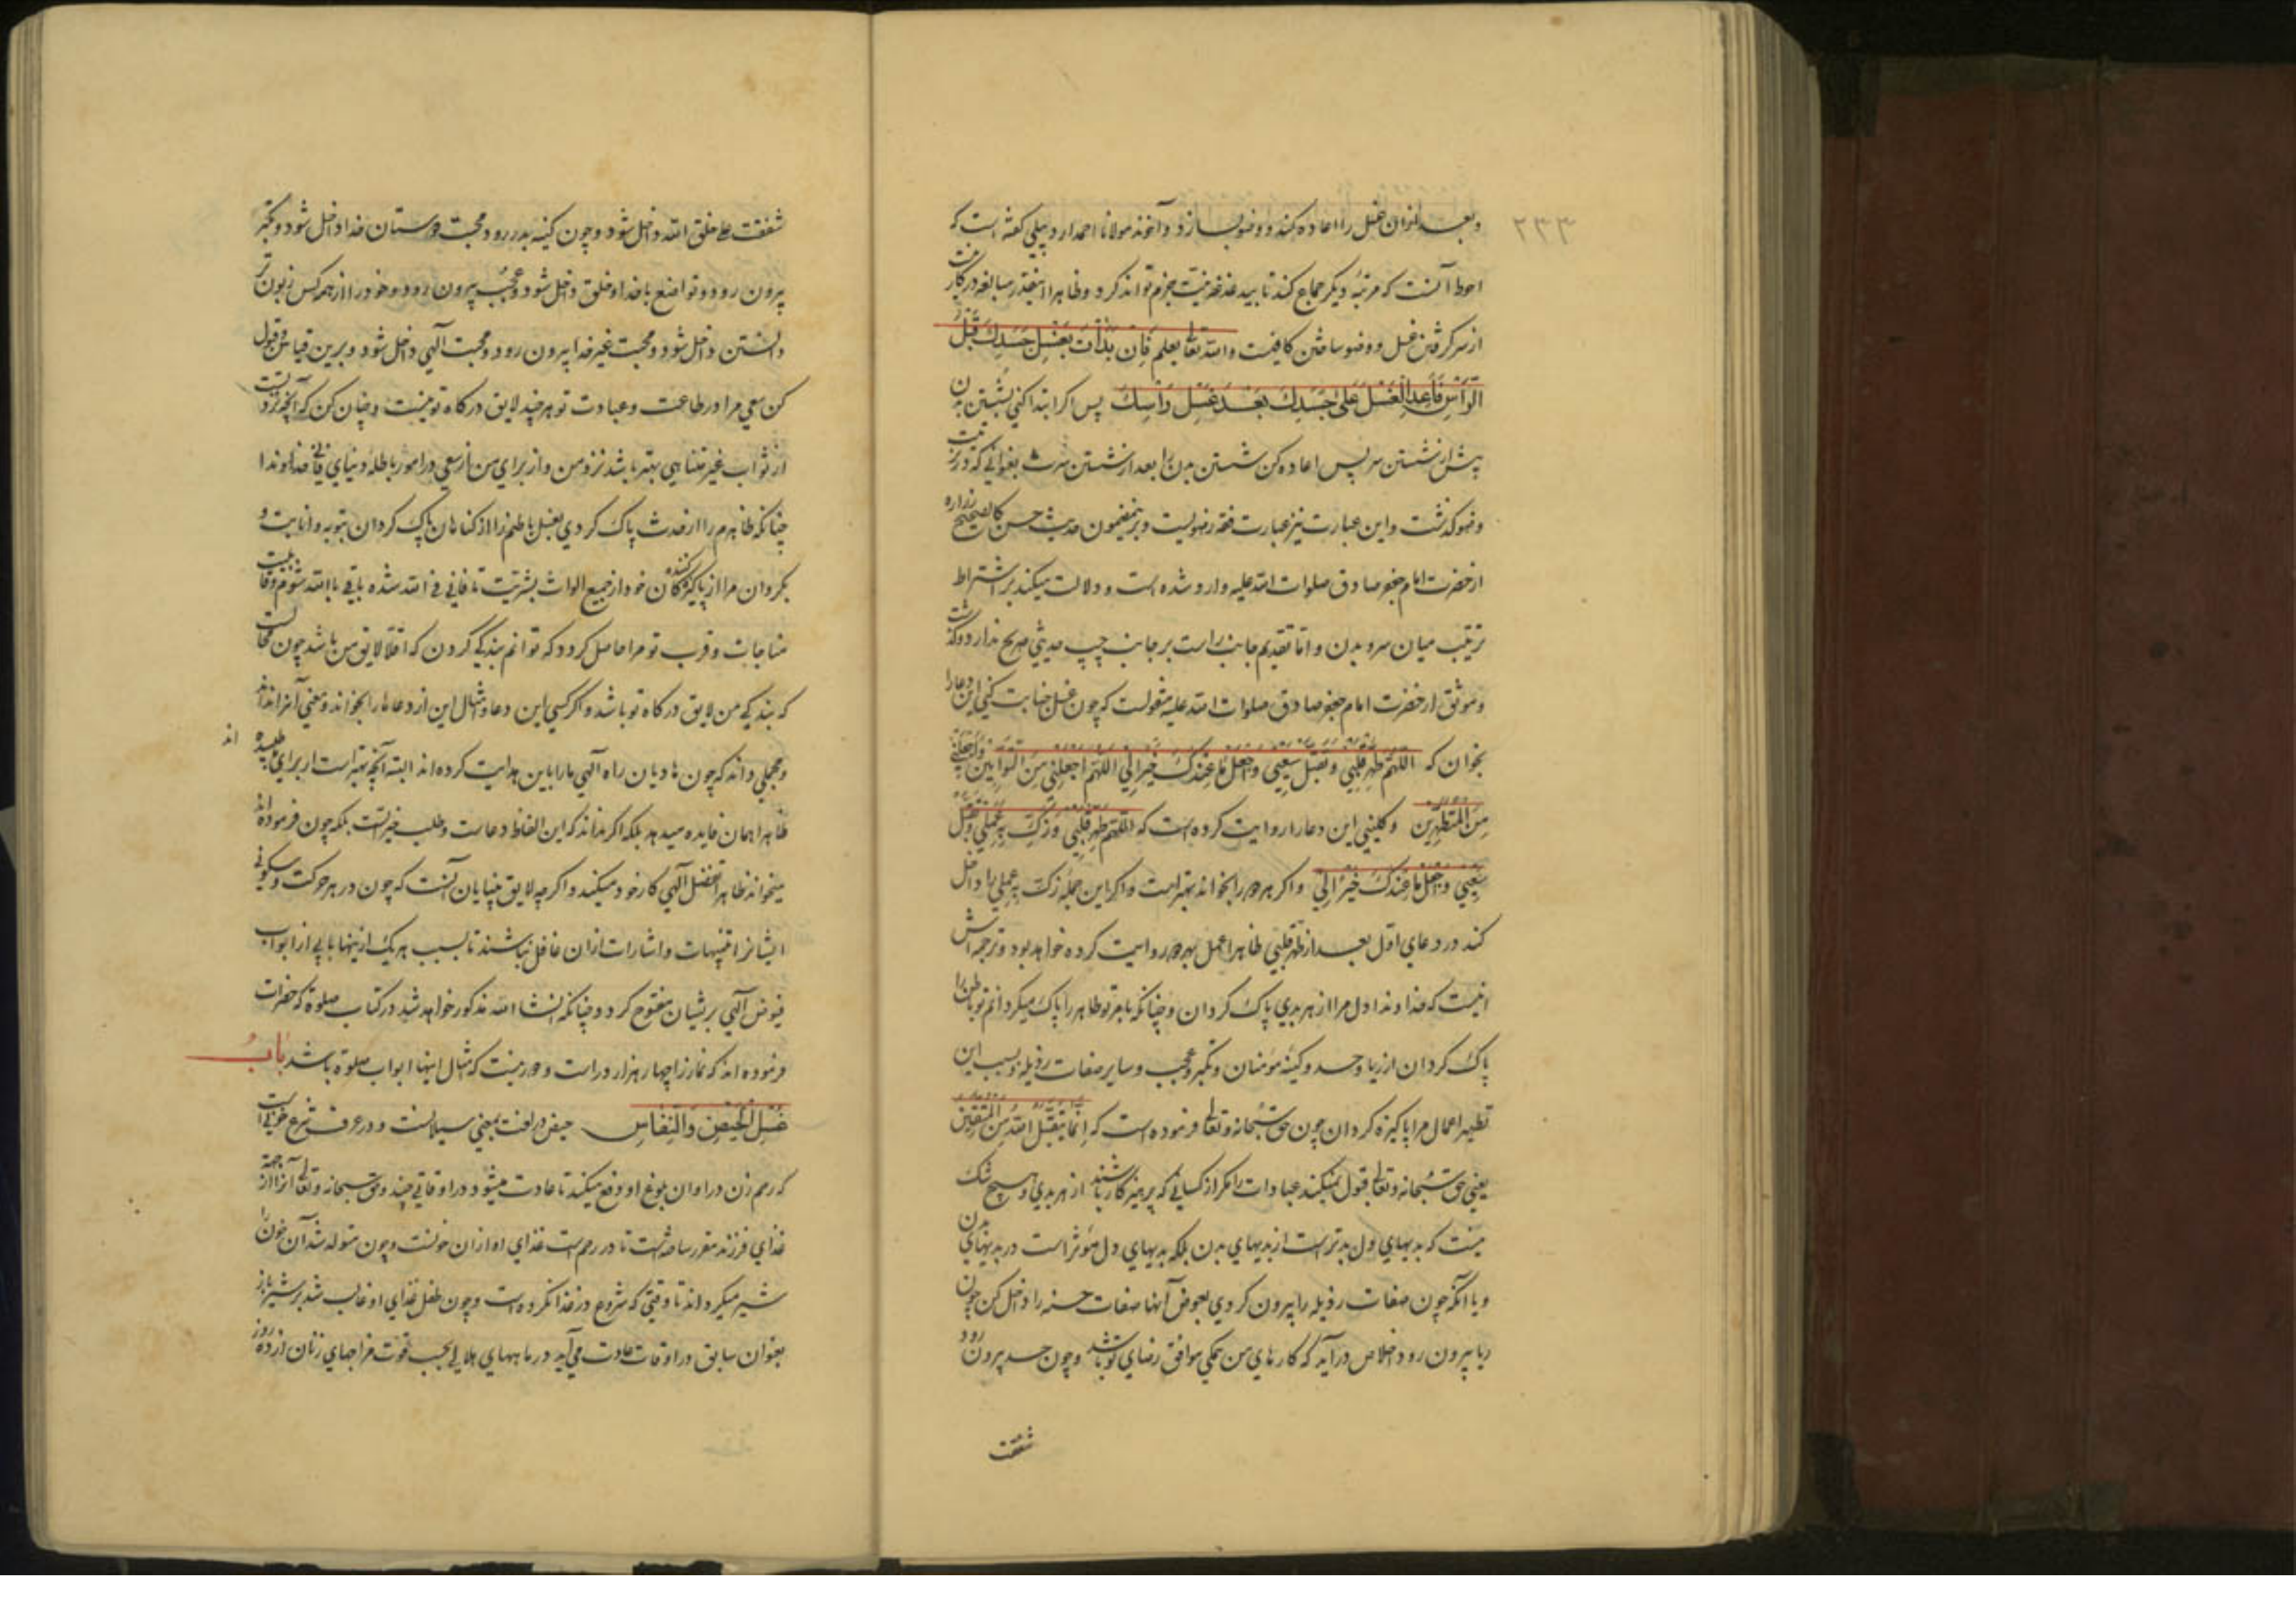 ۲۳۳
و بعد ازان غسل را اعاده کند و وضو بسازد و آخوند مولانا احمد اردبیلی گفته است که
احوط آنست که مرتبه دیگر جماع کند تا بیدغدغه نیت جزم تواند کرد و ظاهرا اینقدر مبالغه در کار نیست
از سر گرفتن غسل و وضو ساختن کافیست والله تعالی یعلم فَاِن بَدَأتَ بِغَسلِ جَسَدِكَ قَبلَ
الرَّأسِ فَاَعِدِ الغَسلَ عَلی جَسَدِكَ بَعدَ غَسلِ رَأسِكَ پس اگر ابتدا کنی بشستن بدن
پیش از شستن سر پس اعاده کن شستن بدن را بعد از شستن سرت بعنوانی که در ترتیب
وضو گذشت و این عبارت نیز عبارت فقه رضویست و برینمضمون حدیث حسن کالصحیح زراره
از حضرت امام جعفر صادق صلوات الله علیه وارد شده است و دلالت میکند بر اشتراط
ترتیب میان سر و بدن و اما تقدیم جانب راست بر جانب چپ حدیثی صریح ندارد و گذشت
و موثق از حضرت امام جعفر صادق صلوات الله علیه منقولست که چون غسل جنابت کنی این دعا را
بخوان که اللّهُمَّ طَهِّر قَلبِی وَتَقَبَّل سَعیِی وَاجعَل مَا عِندَكَ خَیراً لِی اللّهُمَّ اجعَلنِی مِنَ التَّوَّابِینَ وَاجعَلنِی
مِنَ المُتَطَهِّرِینَ و کلینی این دعا را روایت کرده است که اللّهُمَّ طَهِّر قَلبِی وَزَكِّ عَمَلِی وَتَقَبَّل
سَعیِی وَاجعَل مَا عِندَكَ خَیراً لِی و اگر هر دو را بخواند بهتر است و اگر این جمله زکّ عملی را داخل
کند در دعای اول بعد از طهر قلبی ظاهرا عمل بهر دو روایت کرده خواهد بود و ترجمه اش
اینست که خداوندا دل مرا از هر بدی پاک گردان و چنانکه بامر تو ظاهر را پاک میگردانم تو باطن را
پاک گردان از ریا و حسد و کینه مؤمنان و تکبر و عجب و سایر صفات رذیله و بسبب این
تطهیر اعمال مرا پاکیزه گردان چون حق سبحانه و تعالی فرموده است که اِنَّمَا یَتَقَبَّلُ اللهُ مِنَ المُتَّقِینَ
یعنی حق سبحانه و تعالی قبول نمیکند عبادات را مگر از کسانی که پرهیزکار باشند از هر بدی و هیچ شک
نیست که بدیهای دل بدتر است از بدیهای بدن بلکه بدیهای دل مؤثر است در بدیهای بدن
و یا آنکه چون صفات رذیله را بیرون کردی بعوض آنها صفات حسنه را داخل کن چون
ریا بیرون رود اخلاص درآید که کارهای من همگی موافق رضای تو باشد و چون حسد بیرون رود
شفقت
شفقت علی خلق الله داخل شود و چون کینه بدر رود محبت دوستان خدا داخل شود و تکبر
بیرون رود و تواضع با خدا و خلق داخل شود و عجب بیرون رود و خود را از همه کس زبون تر
دانستن داخل شود و محبت غیر خدا بیرون رود و محبت آلهی داخل شود و برین قیاس و قبول
کن سعی مرا در طاعت و عبادت تو هر چند لایق درگاه تو نیست و چنان کن که آنچه نزد تست
از ثواب غیر متناهی بهتر باشد نزد من و از برای من از سعی در امور باطله دنیای فانی خداوندا
چنانکه ظاهرم را از حدث پاک کردی بغسل باطنم را از گناهان پاک گردان بتوبه و انابت و
بگردان مرا از پاکیزه کنندگان خود از جمیع الواث بشریت تا فانی فی الله شده باقی بالله شوم و قابلیت
مناجات و قرب تو مرا حاصل گردد که توانم بندگی کردن که اقلا لایق من باشد چون محالست
که بندگی من لایق درگاه تو باشد و اگر کسی این دعا و امثال این از دعاها را بخواند و معنی آنرا نداند
و مجملی داند که چون هادیان راه آلهی ما را باین هدایت کرده اند البته آنچه بهتر است از برای ما طلبیده اند
ظاهرا همان فایده میدهد بلکه اگر نداند که این الفاظ دعاست و طلب خیر است بلکه چون فرموده اند
میخواند ظاهرا تفضل آلهی کار خود میکند و اگر چه لایق بینایان آنست که چون در هر حرکت و سکونی
ایشانرا تنبیهات و اشارات ازان غافل نباشند تا بسبب هر یک ازینها بابی از ابواب
فیوض آلهی بر ایشان مفتوح گردد چنانکه انشاء الله مذکور خواهد شد در کتاب صلوة که حضرات
فرموده اند که نماز را چهار هزار در است و دور نیست که امثال اینها ابواب صلوة باشد بَابُ
غُسلِ الحَیضِ وَالنِّفَاسِ حیض در لغت بمعنی سیلانست و در عرف شرع خونی است
که رحم زن در اوان بلوغ او دفع میکند تا عادت میشود در اوقاتی چند و حق سبحانه و تعالی آنرا از جهة
غذای فرزند مقرر ساخته است تا در رحم است غذای او ازان خونست و چون متولد شد آن خون را
شیر میگرداند تا وقتی که شروع در غذا نکرده است و چون طفل غذای او غالب شد بر شیر باز
بعنوان سابق در اوقات عادت می آید در ماههای هلالی بحسب قوت مزاجهای زنان از ده روز